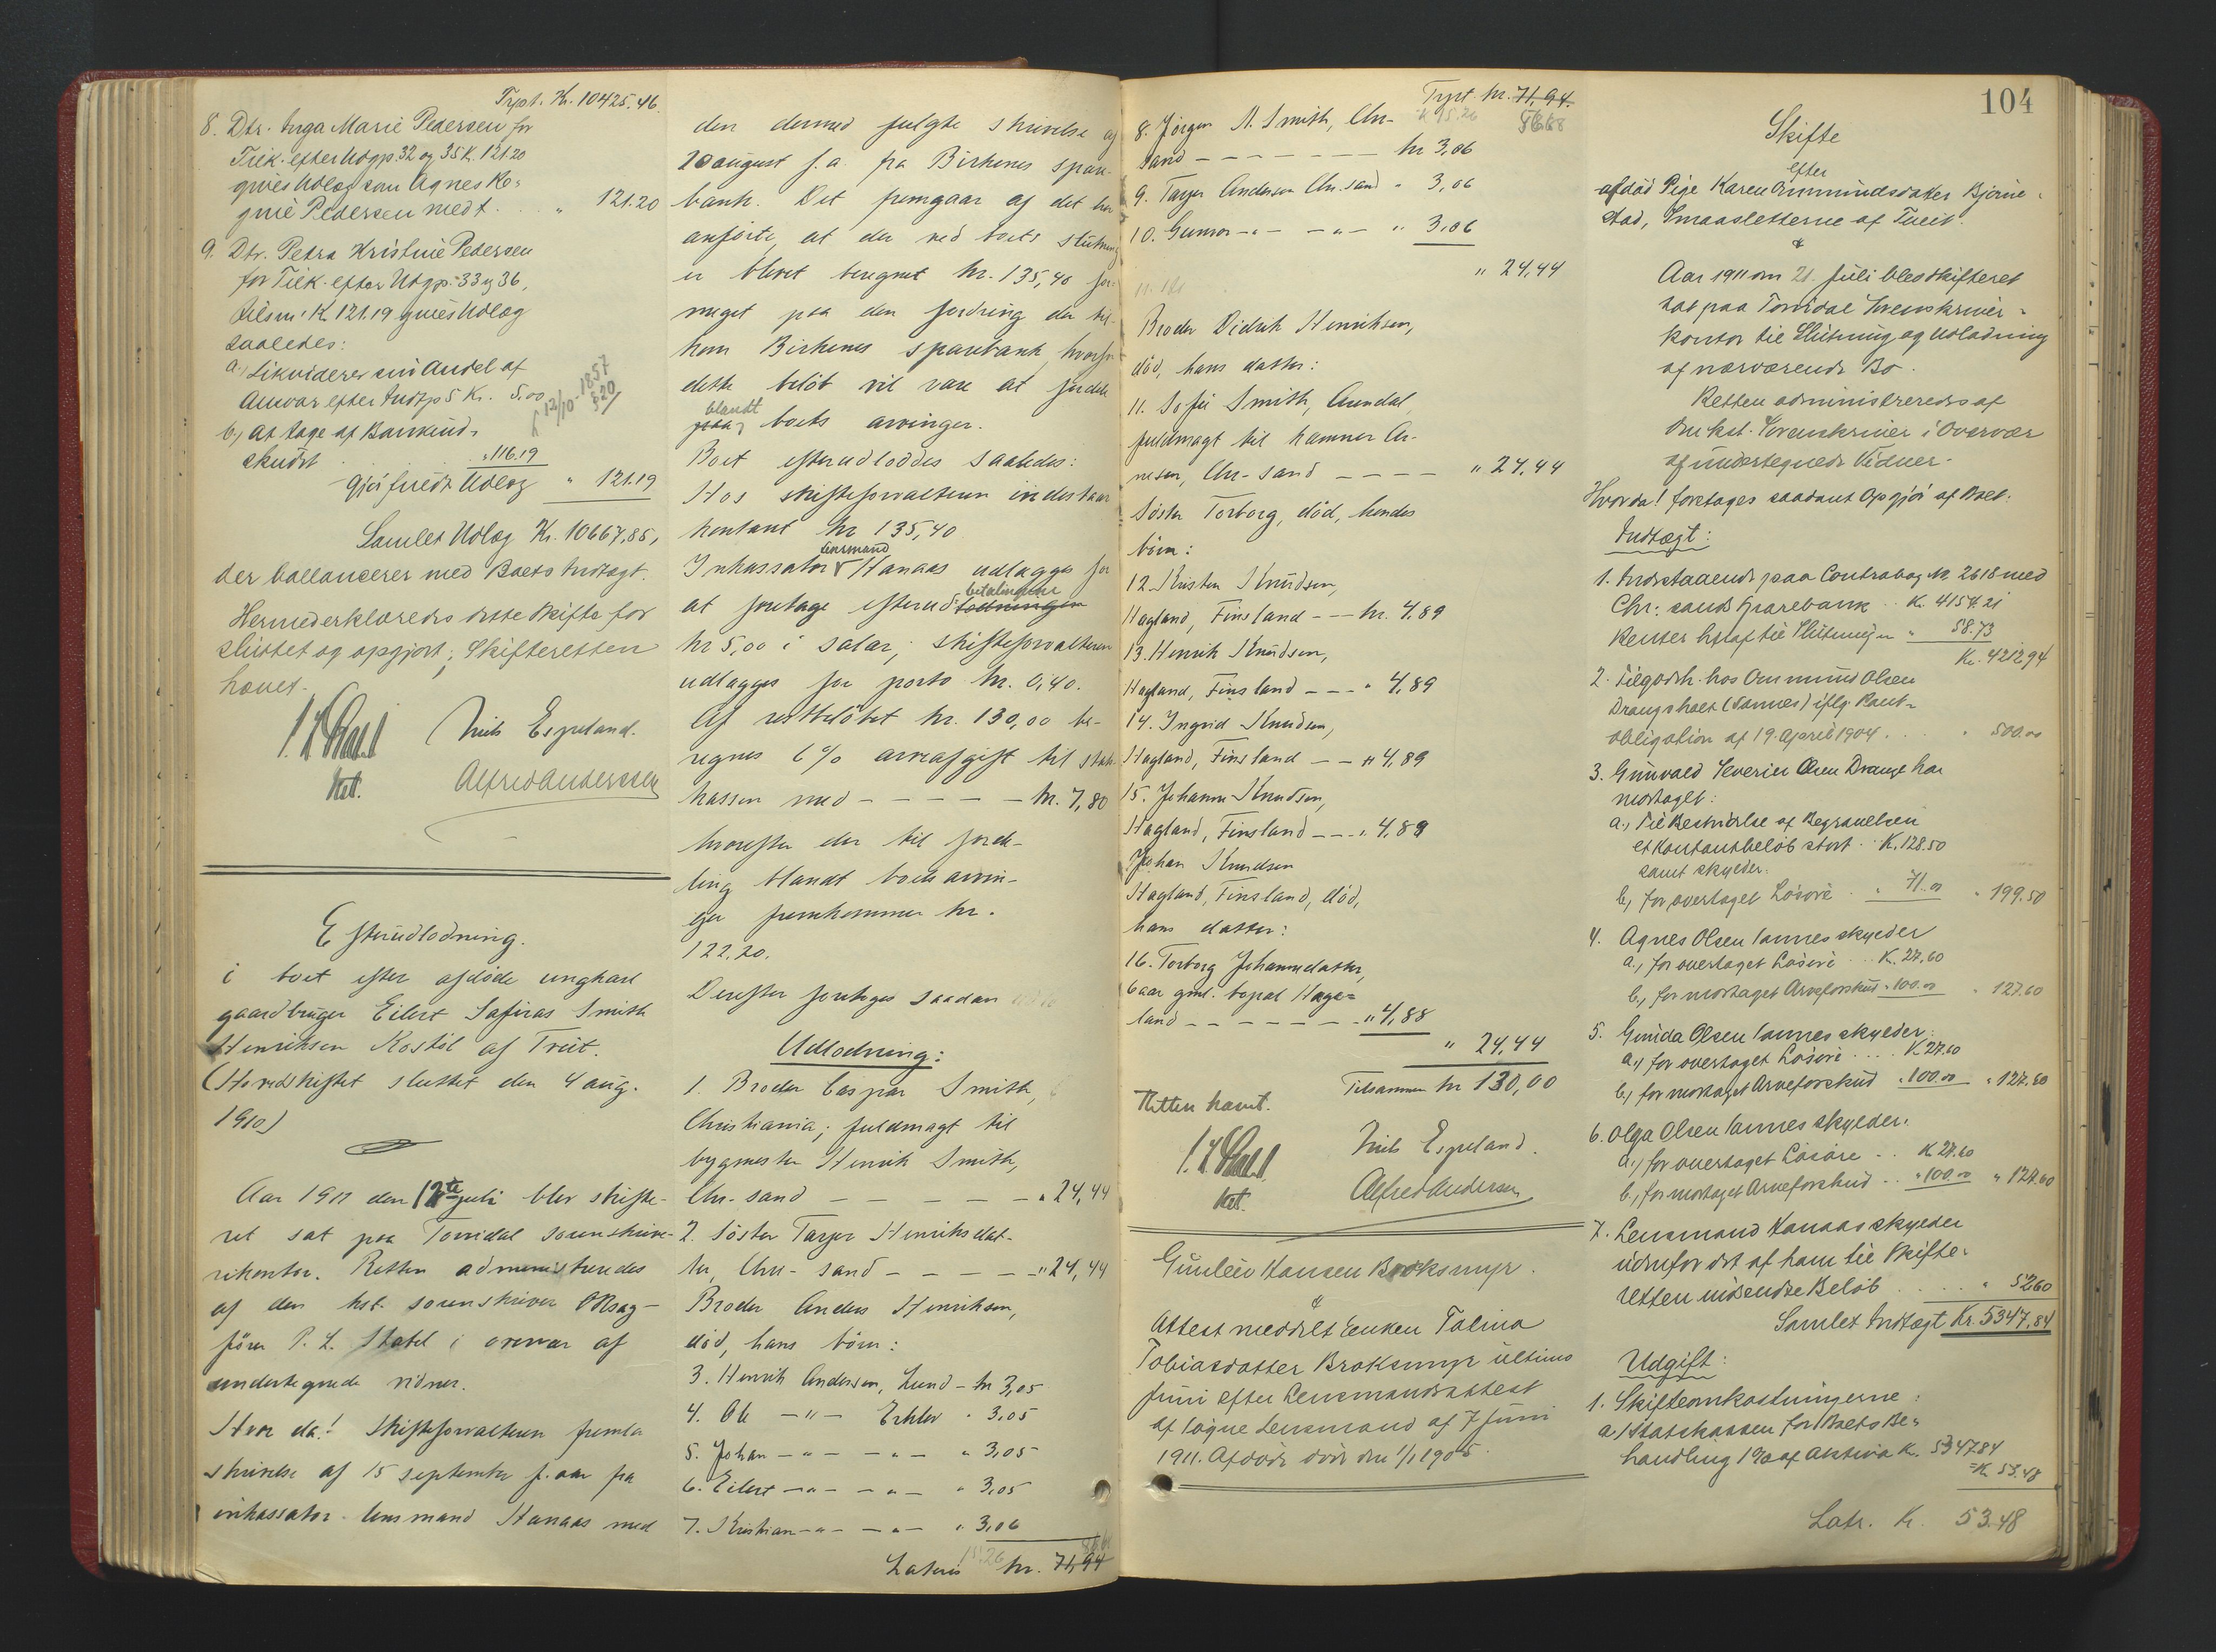 Trpt. Kr. 10425.46
8. Dtr. Inga Marie Pedersen for
Tilk. efter Udgp. 32 og 35 K. 121.20
gives Udlæg som Agnes Re-
gine Pedersen med t. . . " 121.20
9. Dtr. Petra Kristine Pedersen
for Tilk. efter Udgp. 33 og 36,
tilsm: K. 121.19 gives Udlæg
saaledes:
a., Likviderer sin Andel af
Ansvar efter Indtp 5 Kr. 5,00
b., at tage af Bankind-
skudt . . " 116.19
gjör fuldt Udlæg " 121.19
12/10 - 1857
Samlet Udlæg Kr. 10667,85,
der ballancerer med Boets Indtægt.
Hermed erklæredes dette Skifte for
sluttet og opgjort; Skifteretten
hævet.
Niels Espeland.
kst.
Alfred Anderssen
Efterudlodning.
i boet efter afdöde ungkarl
gaardbruger Eilert Safiras Smith
Henriksen Rostöl af Tveit.
(Hovedskiftet sluttet den 4 aug.
1910)
Aar 1911 den 12te juli blev skifte-
ret sat paa Torridal sorenskrive-
rikontor. Retten administreredes
af den kst. sorenskriver O.R.sag-
förer P. L. Stabel i overvær af
undertegnede vidner.
Hvor da! Skifteforvalteren fremla
skrivelse af 15 september f. aar fra
inkassator lensmand Hanaas med
den dermed fulgte skrivelse af
20 august s.a. fra Birkenes spare-
bank. Det fremgaar af det her
anförte, at der ved boets slutning
er blevet beregnet kr. 135,40 for-
meget paa den fordring der til-
kom Birkenes sparebank, hvorfor
dette belöb vil være at fordele
blandt
paa boets arvinger.
Boet efterudloddes saaledes:
Hos skifteforvalteren indestaar
kontant kr 135,40
lensmand
Inkassator Hanaas udlægges for
betalingerne
at foretage efterudlodningen
kr 5,00 i salær; skifteforvalteren
udlægges for porto kr. 0,40.
Af restbelöbet kr. 130,00 be-
regnes 6% arveafgift til stats-
kassen med - - - - - kr. 7,80
hvorefter der til forde-
ling blandt boets arvin-
ger fremkommer kr.
122.20.
Derefter foretoges saadan
Udlodning:
1. Broder Caspar Smith,
Christiania; fuldmagt til
bygmester Henrik Smith,
Chr.-sand - - - - - " 24,44
2. Söster Tarjer Henriksdat-
ter, Chr.-sand - - - - " 24,44
Broder Anders Henriksen,
död, hans börn:
3. Henrik Andersen, Lund - kr 3,05
4. Ole - " - Erkler " 3,05
5. Johan - " - - " - " 3,05
6. Eilert - " - - " - " 3,05
7. Kristian - " - - " - " 3,06
Lateris 15.26 kr. 71,94
Trpt kr. 71,94.
8. Jörgen A. Smith, Chr-
sand - - - - - - - kr 3,06
9. Tarjer Andersen Chr. sand " 3,06
10. Gunvor - " - - " - " 3,06
" 24,44
Broder Didrik Henriksen,
död, hans datter:
11. Sofie Smith, Arendal,
fuldmagt til kæmner Ar-
nesen, Chr-sand - - - - " 24,44
Söster Torborg, död, hendes
börn:
12. Kristen Knudsen,
Hagland, Finsland - - kr. 4,89
13. Henrik Knudsen,
Hagland, Finsland - - - " 4,89
14. Ingrid Knudsen,
Hagland, Finsland - - " 4,89
15. Johanne Knudsen,
Hagland, Finsland - - - " 4,89
Johan Knudsen
Hagland, Finsland, död,
hans datter:
16. Torborg Johannedatter,
6 aar gml. bopæl Hage-
land - - - - - - - " 4,88
" 24,44
Tilsammen kr 130,00
Retten hævet.
Niels Espeland.
kst.
Alfred Andersen
Gunleiv Hansen Broksmyr.
Attest meddelt Enken Talina
Tobiasdatter Broksmyr ultimo
Juni efter Lensmandsattest
af Søgne Lensmand af 7 Juni
1911. Afdöde döde den 1/1 1905.
104
Skifte
efter
afdöd Pige Karen Ommundsdatter Bjørne-
stad, Smaasletterne af Tveit.
Aar 1911 den 21. Juli blev Skifteret
sat paa Torridal Sorenskriver-
kontor til Slutning og Udlodning
af nærværende Bo.
Retten administreredes af
den kst. Sorenskriver i Overvær
af undertegnede Vidner.
Hvorda! foretages saadant Opgjör af Boet:
Indtægt:
1. Indestaaende paa Contrabog № 2618 med
Chr.sands Sparebank . . K. 4154.21
Renter hraf til Slutningen " 58.73
Kr. 4212.94
2. Tilgodeh. hos Ommund Olsen
Drangsholt (Sannes) iflg. Pant-
obligation af 19. April 1904 . . . " 500.00
3. Gunvald Severin Olsen Drange har
modtaget:
a., Til Bestridelse af Begravelsen
et Kontantbelöb stort . K. 128.50
samt skylder:
b., for overtaget Lösöre . " 71.00 " 199.50
4. Agnes Olsen Sannes skylder
a., for overtaget Lösöre . . K. 27.60
b., for modtaget Arveforskud " 100.00 " 127.60
5. Gunda Olsen Sannes skylder:
a., for overtaget Lösöre . . . . K. 27.60
b., for modtaget Arveforskud " 100.00 " 127.60
6. Olga Olsen Sannes skylder:
a., for overtaget Lösöre . . K 27.60
b., for modtaget Arveforskud . . " 100.00 " 127.60
7. Lensmand Hanaas skylder
udenfor det af ham til Skifte-
retten indsendte Belöb . . . . " 52.60
Samlet Indtægt Kr. 5347,84
Udgift:
1. Skifteomkostningerne:
a/ Statskassen for Boets Be-
handling 1% af Aktiva K. 5347.84
= K. 53.48
Latr. K. 53.48